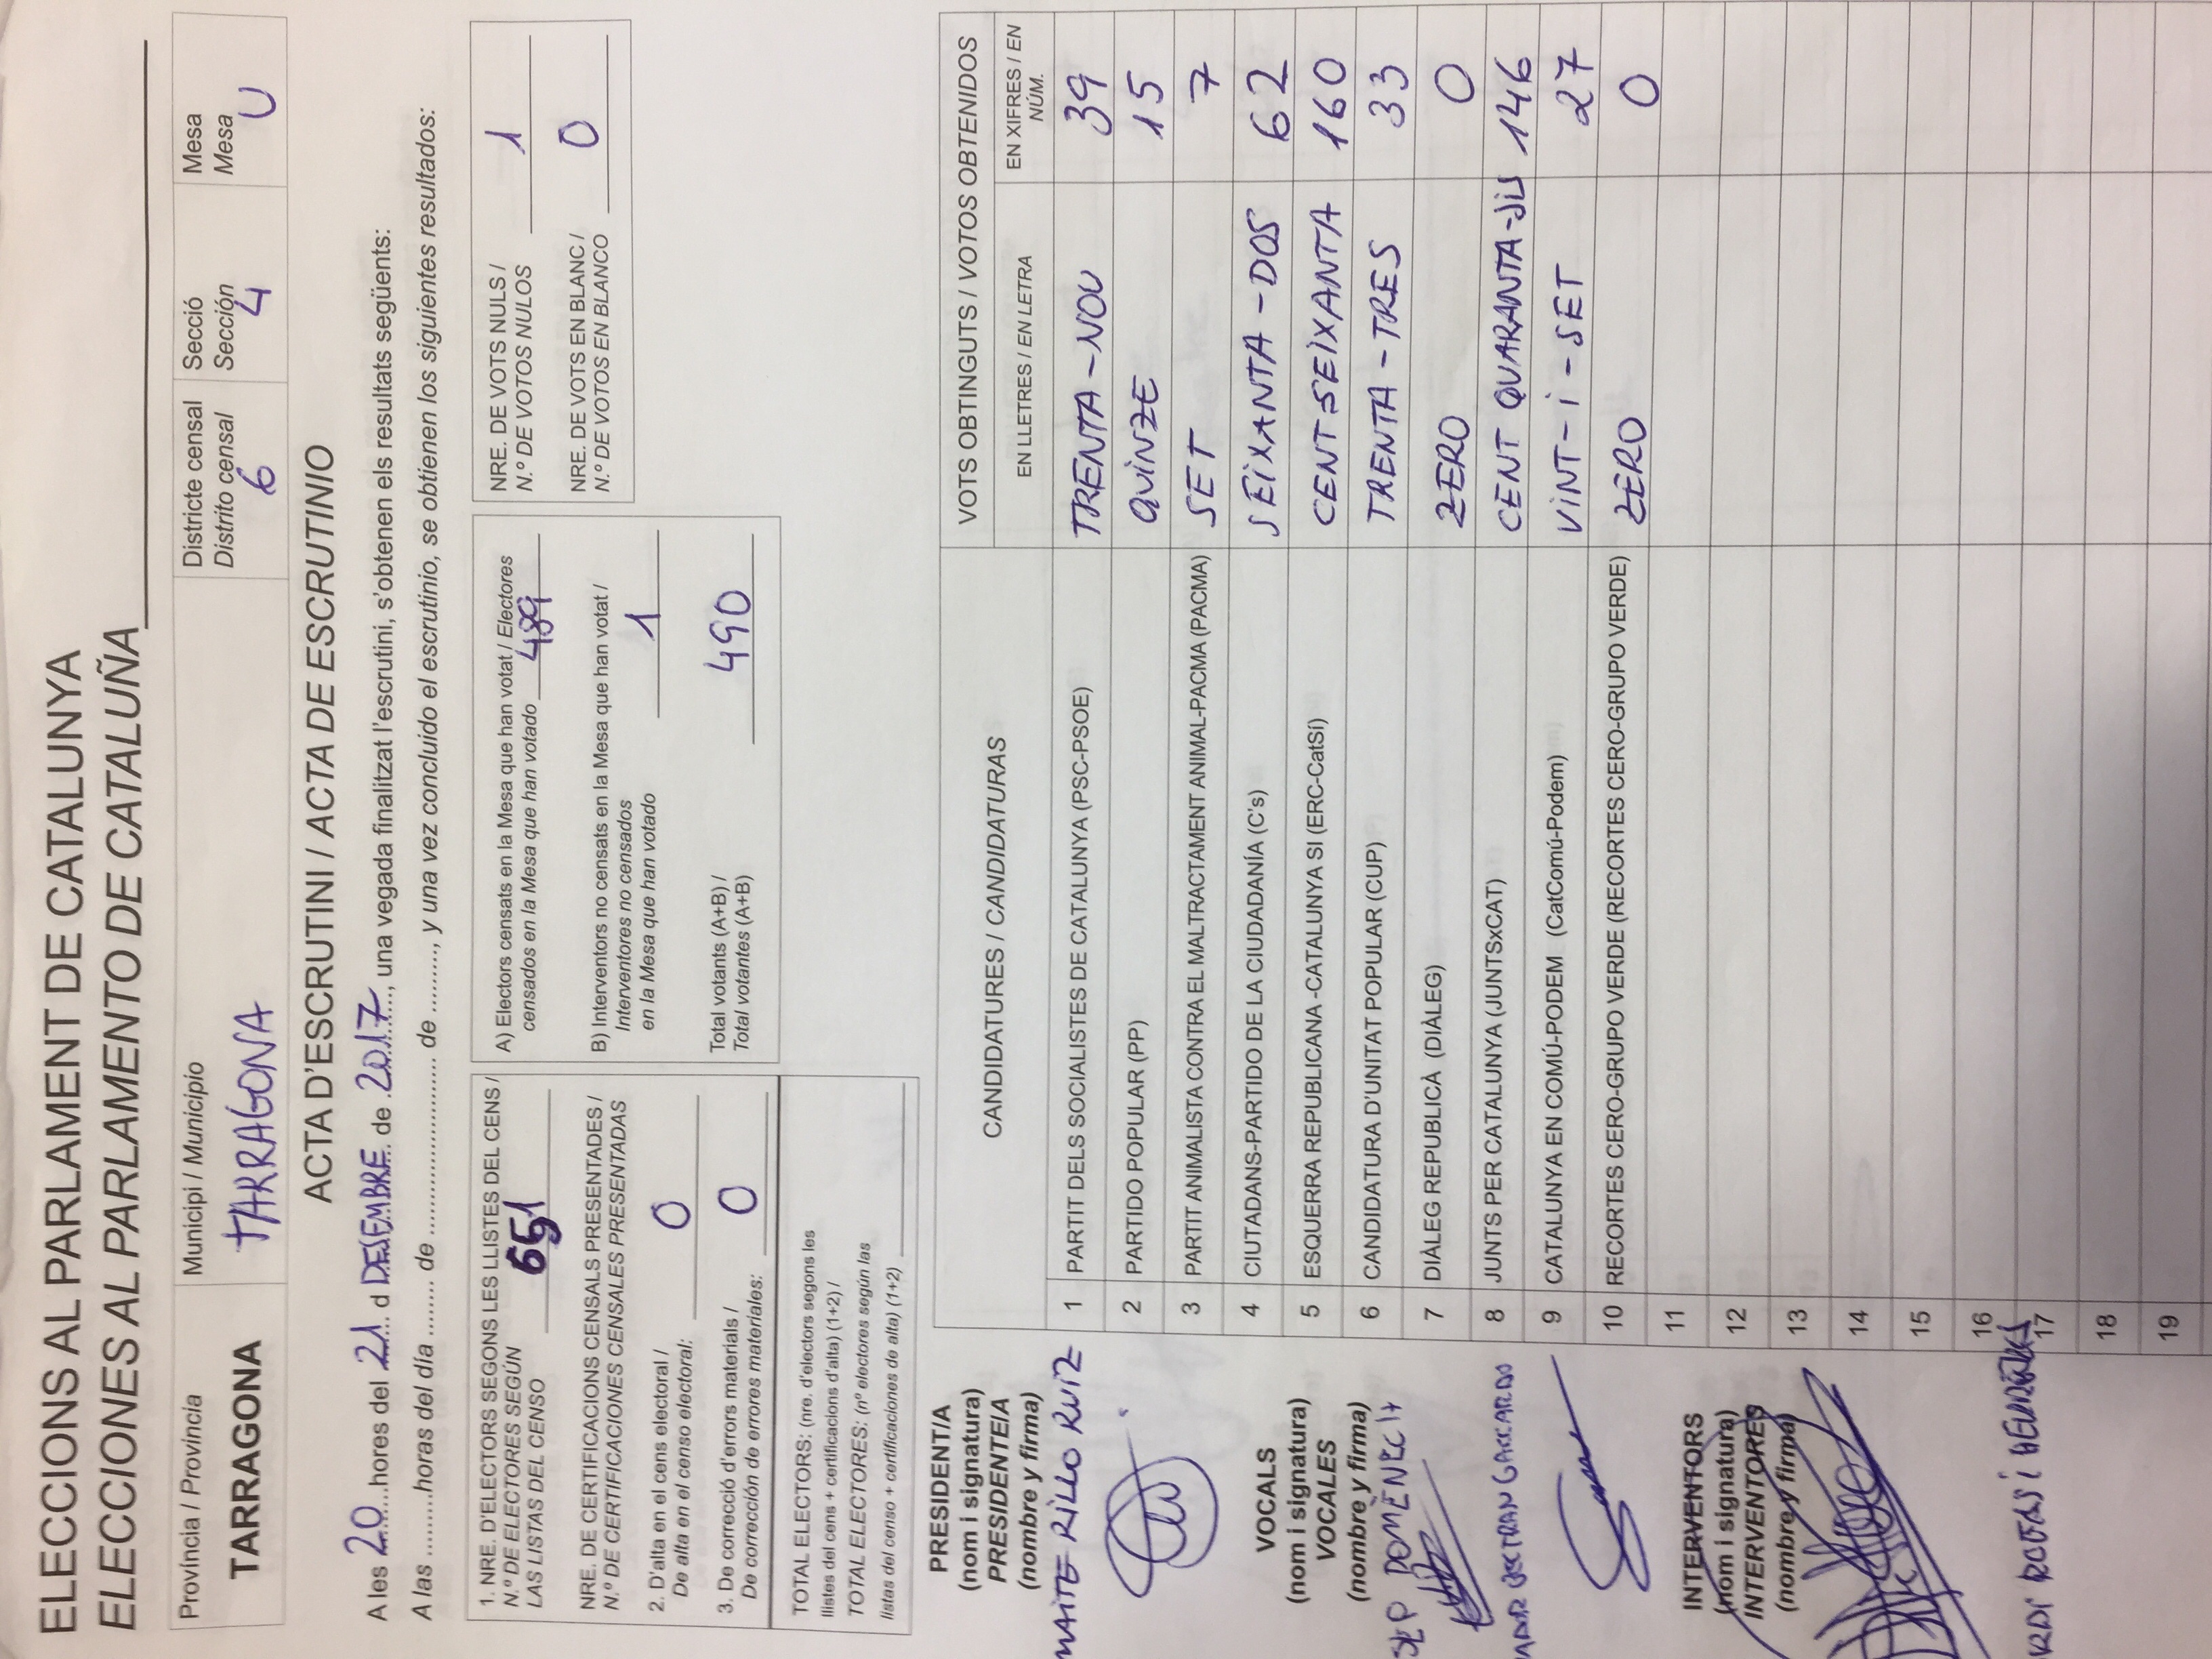 ELECCIONS AL PARLAMENT DE CATALUNYA
ELECCIONES AL PARLAMENTO DE CATALUÑA
Província / Provincia
TARRAGONA
Municipi / Municipio
TARRAGONA
Districte censal
Distrito censal
6
Secció
Sección
4
Mesa
Mesa
U
ACTA D'ESCRUTINI / ACTA DE ESCRUTINIO
A les 20 hores del 21 d DESEMBRE de 2017, una vegada finalitzat l'escrutini, s'obtenen els resultats següents:
A las .........horas del día ........ de ......................... de ........., y una vez concluido el escrutinio, se obtienen los siguientes resultados:
1. NRE. D'ELECTORS SEGONS LES LLISTES DEL CENS /
N.º DE ELECTORES SEGÚN
LAS LISTAS DEL CENSO 651
NRE. DE CERTIFICACIONS CENSALS PRESENTADES /
N.º DE CERTIFICACIONES CENSALES PRESENTADAS
2. D'alta en el cens electoral /
De alta en el censo electoral: 0
3. De correcció d'errors materials /
De corrección de errores materiales: 0
TOTAL ELECTORS: (nre. d'electors segons les
llistes del cens + certificacions d'alta) (1+2) /
TOTAL ELECTORES: (nº electores según las
listas del censo + certificaciones de alta) (1+2)
A) Electors censats en la Mesa que han votat / Electores
censados en la Mesa que han votado 489
B) Interventors no censats en la Mesa que han votat /
Interventores no censados
en la Mesa que han votado 1
Total votants (A+B) /
Total votantes (A+B) 490
NRE. DE VOTS NULS /
N.º DE VOTOS NULOS 1
NRE. DE VOTS EN BLANC /
N.º DE VOTOS EN BLANCO 0
PRESIDENT/A
(nom i signatura)
PRESIDENTE/A
(nombre y firma)
MAITE RILLO RUIZ
VOCALS
(nom i signatura)
VOCALES
(nombre y firma)
DOMÈNECH
INTERVENTORS
(nom i signatura)
INTERVENTORES
(nombre y firma)
CANDIDATURES / CANDIDATURAS
VOTS OBTINGUTS / VOTOS OBTENIDOS
EN LLETRES / EN LETRA
EN XIFRES / EN
NÚM.
1 PARTIT DELS SOCIALISTES DE CATALUNYA (PSC-PSOE) TRENTA-NOU 39
2 PARTIDO POPULAR (PP) QUINZE 15
3 PARTIT ANIMALISTA CONTRA EL MALTRACTAMENT ANIMAL-PACMA (PACMA) SET 7
4 CIUTADANS-PARTIDO DE LA CIUDADANÍA (C's) SEIXANTA-DOS 62
5 ESQUERRA REPUBLICANA -CATALUNYA SI (ERC-CatSí) CENT SEIXANTA 160
6 CANDIDATURA D'UNITAT POPULAR (CUP) TRENTA-TRES 33
7 DIÀLEG REPUBLICÀ (DIÀLEG) ZERO 0
8 JUNTS PER CATALUNYA (JUNTSxCAT) CENT QUARANTA-SIS 146
9 CATALUNYA EN COMÚ-PODEM (CatComú-Podem) VINT-I-SET 27
10 RECORTES CERO-GRUPO VERDE (RECORTES CERO-GRUPO VERDE) ZERO 0
11
12
13
14
15
16
17
18
19